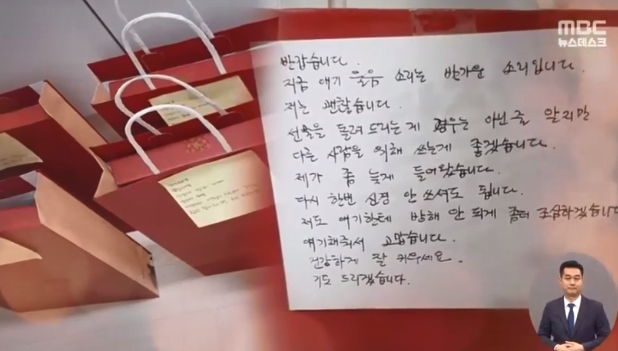 MBC
뉴스데스크
반갑습니다.
지금 애기 울음 소리는 반가운 소리입니다.
저는 괜찮습니다.
선물을 돌려 드리는게 경우는 아닌줄 알지만
다른 사람을 위해 쓰는게 좋겠습니다.
제가 좀 늦게 들어왔습니다.
다시 한번 신경 안 쓰셔도 됩니다.
저도 애기한테 방해 안 되게 좀더 조심하겠습니다
얘기해줘서 고맙습니다.
건강하게 잘 키우세요.
기도 드리겠습니다.